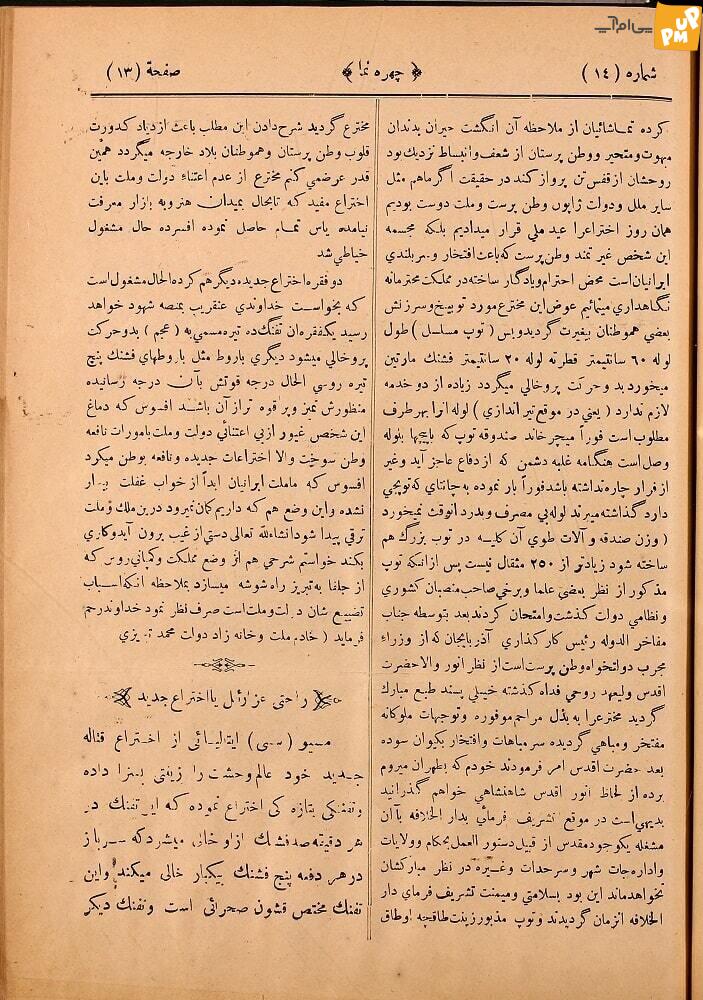 پی‌ام‌آپ
PM UP
شماره (١٤)
﴿ چهره نما ﴾
صفحة (١٣)
کرده تماشائیان از ملاحظه آن انگشت حیران بدندان
مبهوت و متحیر و وطن پرستان از شعف و انبساط نزدیك بود
روحشان از قفس تن پرواز کند در حقیقت اگر ماهم مثل
سایر ملل و دولت ژاپون وطن پرست و ملت دوست بودیم
همان روز اختراعرا عید ملی قرار میدادیم بلکه مجسمه
این شخص غیرتمند وطن پرست که باعث افتخار و سربلندی
ایرانیان است محض احترام و یادگار ساخته در مملکت محترمانه
نگاهداری مینمائیم عوض این مخترع مورد توبیخ و سرزنش
بعضی هموطنان بیغیرت گردید و بس ( توپ مسلسل ) طول
لوله ٦٠ سانتیمتر قطر ته لوله ٢٠ سانتیمتر فشنك مارتین
میخورد بد و حرکت پر و خالی میگردد زیاده از دو خدمه
لازم ندارد ( یعنی در موقع تیر اندازی ) لوله انرا بهر طرف
مطلوب است فوراً میچرخاند صندوقه توپ که باپیچها بلوله
وصل است هنگامه غلبه دشمن که از دفاع عاجز آید و غیر
از فرار چاره نداشته باشد فوراً باز نموده به چانتای که توپچی
دارد گذاشته میبرند لوله بی مصرف و بدرد انوقت نمیخورد
( وزن صندقه و آلات طوی آن کلیه در توب بزرگ هم
ساخته شود زیادتر از ٢٥٠ مثقال نیست پس از انکه توپ
مذکور از نظر بعضی علما و برخی صاحب منصبان کشوری
و نظامی دولت گذشت و امتحان کردند بعد بتوسطه جناب
مفاخر الدوله رئیس کارگذاری آذربایجان که از وزراء
مجرب دولتخواه وطن پرست است از نظر انور والا حضرت
اقدس ولیعهد روحی فداه گذشته خیلی پسند طبع مبارك
گردید مخترعرا به بذل مراحم موفوره و توجهات ملوکانه
مفتخر و مباهی گردیده سر مباهات و افتخار بکیوان سوده
بعد حضرت اقدس امر فرمودند خودم که بطهران میروم
برده از لحاظ انور اقدس شاهنشاهی خواهم گذرانید
بدیهی است در موقع تشریف فرمائی بدار الخلافه باآن
مشغله یکوجود مقدس از قبیل دستور العمل بحکام و ولایات
و اداره جات شهر و سرحدات وغیره در نظر مبارکشان
نخواهد ماند این بود بسلامتی و میمنت تشریف فرمای دار
الخلافه انزمان گردیدند و توپ مذبور زینت طاقچه اوطاق
مخترع گردید شرح دادن این مطلب باعث ازدیاد کدورت
قلوب وطن پرستان و هموطنان بلاد خارجه میگردد همین
قدر عرضمی کنم مخترع از عدم اعتناء دولت و ملت باین
اختراع مفید که تابحال بمیدان هنر و به بازار معرفت
نیامده یاس تمام حاصل نموده افسرده حال مشغول
خیاطی شد
دو فقره اختراع جدیده دیگر هم کرده الحال مشغول است
که بخواست خداوندی عنقریب بمنصه شهود خواهد
رسید یکفقره ان تفنگ ده تیره مسمی به ( عجم ) بدو حرکت
پر و خالی میشود دیگری باروط مثل باروطهای فشنك پنج
تیره روسی الحال درجه قوتش بآن درجه رسانیده
منظورش تمیز و پر قوه تر از آن باشد افسوس که دماغ
این شخص غیور از بی اعتنائی دولت و ملت بامورات نافعه
وطن سوخت والا اختراعات جدیده و نافعه بوطن میکرد
افسوس که ماملت ایرانیان ابداً از خواب غفلت بیدار
نشده و این وضع هم که داریم گمان نمیرود در بن ملك و ملت
ترقی پیدا شود انشاء الله تعالی دستی از غیب برون آید و کاری
بکند خواستم شرحی هم از وضع مملکت و کمپانی روس که
از جلفا به تبریز راه شوشه میسازد بملاحظه انکه اسباب
تضییع شان دولت و ملت است صرف نظر نمود خداوند رحم
فرماید ( خادم ملت و خانه زاد دولت محمد تبریزی
راحتی عزرائل یا اختراع جدید
مسیو (سی) ایتالیائی از اختراع قتاله
جدید خود عالم وحشت را زینتی بسزا داده
و تفنکی بتازه کی اختراع نموده که این تفنك در
هر دقیقه صد فشنك از او خالی میشود که سرباز
در هر دفعه پنج فشنك بیکبار خالی میکند و این
تفنك مختص قشون صحرائی است و تفنك دیکر